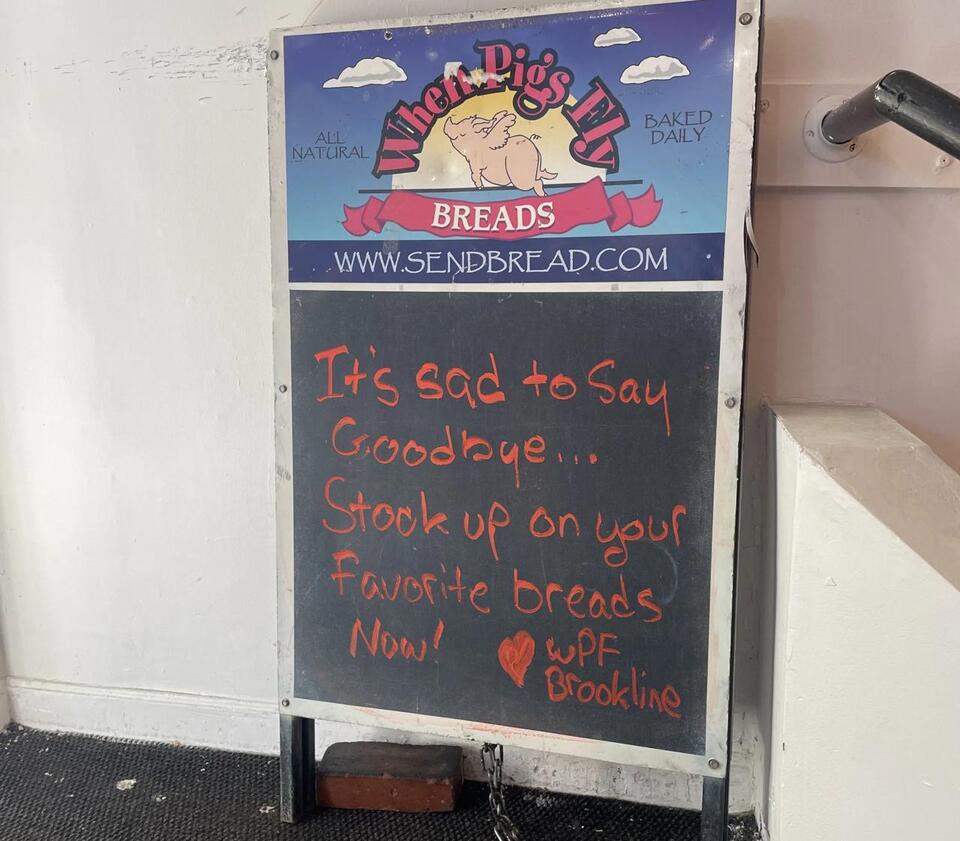 When Pigs Fly
ALL
NATURAL
BAKED
DAILY
BREADS
WWW.SENDBREAD.COM
It's sad to Say
Goodbye...
Stock up on your
Favorite breads
Now!
WPF
Brookline